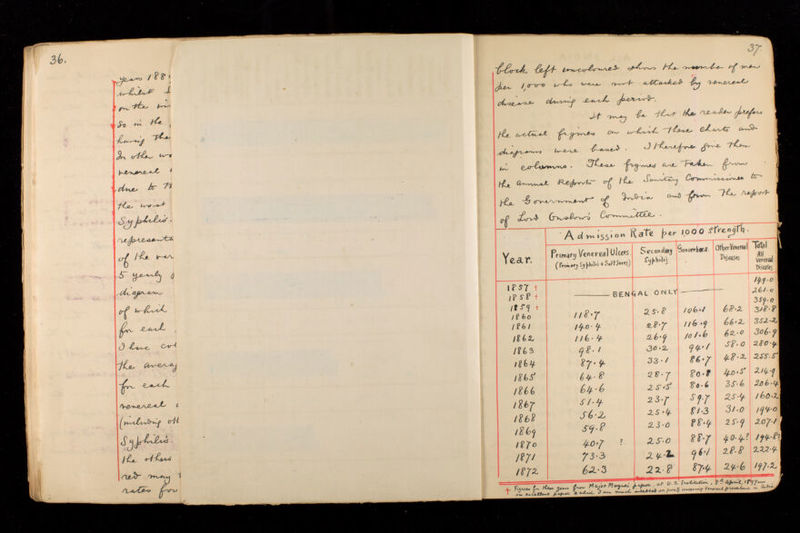 36.
years 188
whilst
on the
so in the
having the
In other
venereal
due to
the worst
Syphilis.
represents
of the
5 yearly
diagram
of which
for each
I have
the average
for each
venereal
(including
Syphilis.
the others
red may
rates for
37.
block left uncoloured shows the number of men
per 1,000 who were not attacked by venereal
disease during each period.
It may be that the reader prefers
the actual figures on which these charts and
diagrams were based. I therefore give them
in columns. These figures are taken from
the annual Reports of the Sanitary Commissioner to
the Government of India and from the report
of Lord Onslow's Committee.
Admission Rate per 1000 strength.
Year. Primary Venereal Ulcers (Primary Syphilis & Soft Sores) Secondary Syphilis Gonorrhœa. Other Venereal Diseases Total All venereal Diseases
1857 † 149.0
1858 † BENGAL ONLY 261.0
1859 † 359.0
1860 118.7 25.8 106.1 68.2 318.8
1861 140.4 28.7 116.9 66.2 352.2
1862 116.4 26.9 101.6 62.0 306.9
1863 98.1 30.2 94.1 58.0 280.4
1864 87.4 33.1 86.7 48.2 255.5
1865 64.8 28.7 80.8 40.5 214.9
1866 64.6 25.5 80.6 35.6 206.4
1867 51.4 23.7 59.7 25.4 160.2
1868 56.2 25.4 81.3 31.0 194.0
1869 59.8 23.0 88.4 25.9 207.1
1870 40.7 ? 25.0 88.7 40.4? 194.8?
1871 73.3 24.2 96.1 28.8 222.4
1872 62.3 22.8 87.4 24.6 197.2
† Figures for these years from Major paper, at U.S. Institution, 8th April, 1897
an excellent paper & which I am much indebted venereal prevalence in India